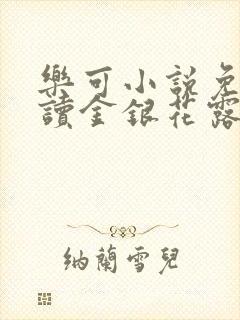 樂可小說免
讀金銀花露
納蘭雪兒